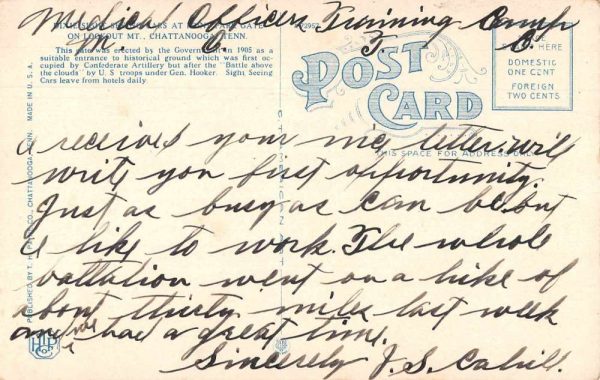 Medical Officers Training Camp
M. O. T. C.
SIGHT SEEING CARS AT GATE
ON LOOKOUT MT., CHATTANOOGA, TENN.
This gate was erected by the Government in 1905 as a
suitable entrance to historical ground which was first oc-
cupied by Confederate Artillery but after the "Battle above
the clouds" by U. S. troops under Gen. Hooker. Sight Seeing
Cars leave from hotels daily.
POST
CARD
HERE
DOMESTIC
ONE CENT
FOREIGN
TWO CENTS
THIS SPACE FOR ADDRESS ONLY
PUBLISHED BY T. H. CO., CHATTANOOGA, TENN. MADE IN U. S. A.
I received your nice letter. will
write you first opportunity.
Just as busy as can be. but
I like to work. The whole
battalion went on a hike of
about thirty miles last week
and we had a great time.
Sincerely J. S. Cahill.